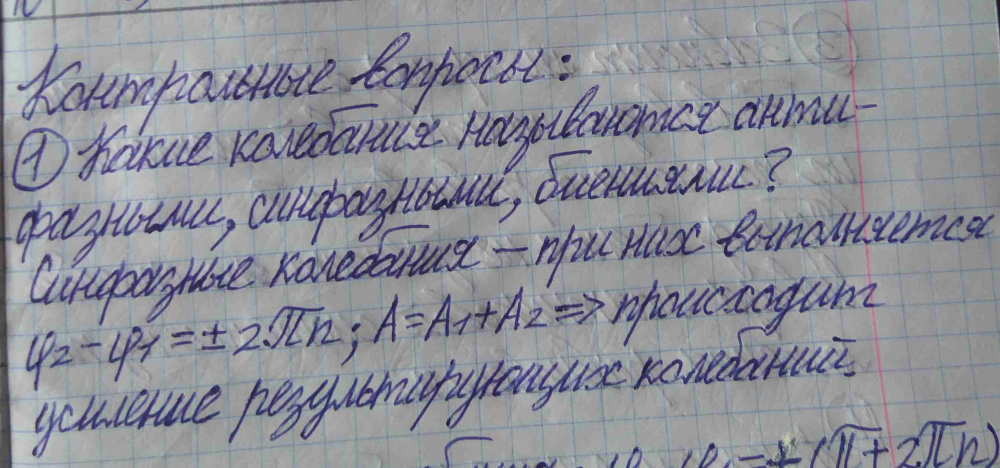 Контрольные вопросы:
① Какие колебания называются анти-
фазными, синфазными, биениями?
Синфазные колебания – при них выполняется
φ₂ - φ₁ = ± 2πn; A = A₁ + A₂ => происходит
усиление результирующих колебаний.
= ± (π + 2πn)